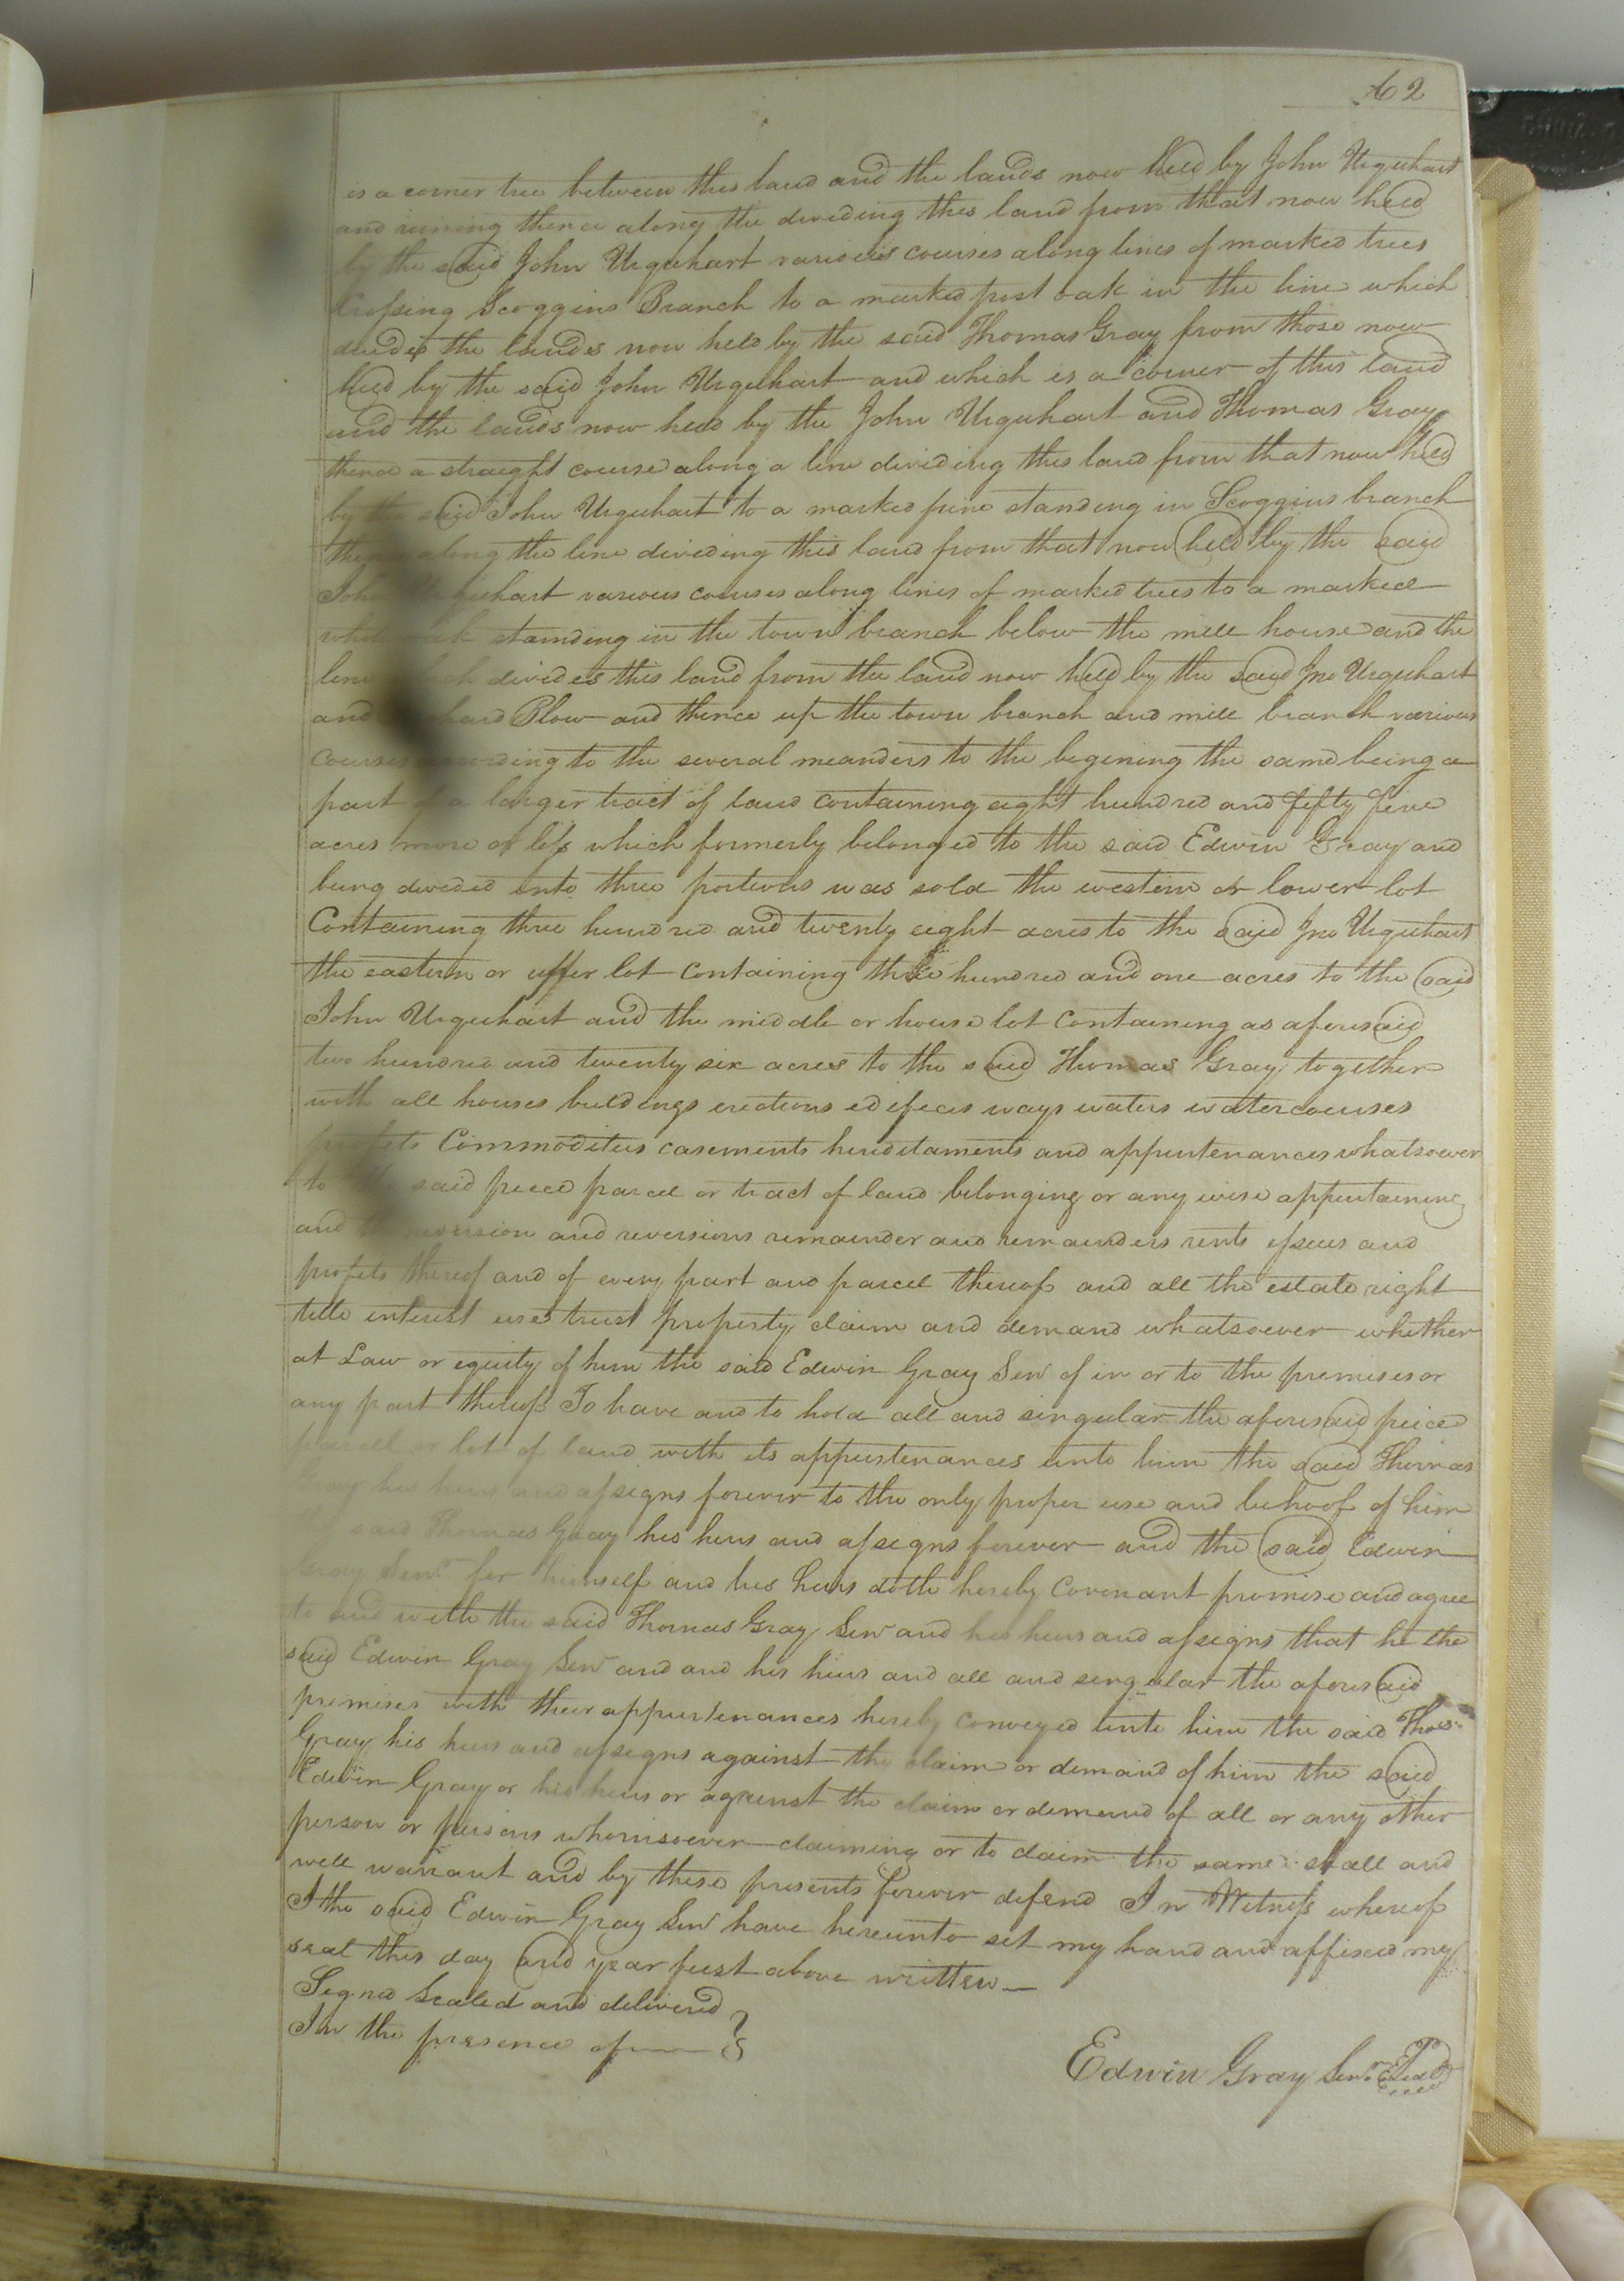 62
is a corner tree between this land and the lands now held by John Urquhart
and runing thence along the dividing this land from that now held
by the said John Urquhart various courses along lines of marked trees
Crossing Scoggins Branch to a marked post oak in the line which
divides the lands now held by the said Thomas Gray from those now
held by the said John Urquhart and which is a corner of this land
and the lands now held by the John Urquhart and Thomas Gray
thence a straight course along a line dividing this land from that now held
by the said John Urquhart to a marked pine standing in Scoggins branch
thence along the line dividing this land from that now held by the said
John Urquhart various courses along lines of marked trees to a marked
white oak standing in the town branch below the mill house and the
line which divides this land from the land now held by the said Jno Urquhart
and Blow and thence up the town branch and mill branch various
courses according to the several meanders to the begining the same being a
part of a larger tract of land containing eight hundred and fifty five
acres more or less which formerly belonged to the said Edwin Gray and
being divided into three portions was sold the western or lower lot
Containing three hundred and twenty eight acres to the said Jno Urquhart
the eastern or upper lot containing three hundred and one acres to the said
John Urquhart and the middle or house lot containing as aforesaid
two hundred and twenty six acres to the said Thomas Gray together
with all houses buildings erections edifeces ways waters watercourses
profits Commodities easements hereditaments and appurtenances whatsoever
to the said peece parcel or tract of land belonging or any wise appertaining
and the reversion and reversions remainder and remainders rents issues and
profits thereof and of every part and parcel thereof and all the estate right
title interest use trust property claim and demand whatsoever whether
at Law or equity of him the said Edwin Gray Senr of in or to the premises or
any part thereof To have and to hold all and singular the aforesaid peice
parcel or lot of land with its appurtenances unto him the said Thomas
Gray his heirs and assigns forever to the only proper use and behoof of him
the said Thomas Gray his heirs and assigns forever and the said Edwin
Gray Senr. for himself and his heirs doth hereby Covenant promise and agree
to and with the said Thomas Gray Senr and his heirs and assigns that he the
said Edwin Gray Senr and and his heirs and all and singular the aforesaid
premises with their appurtenances hereby conveyed unto him the said Thos.
Gray his heirs and assigns against the claim or demand of him the said
Edwin Gray or his heirs or against the claim or demand of all or any other
person or persons whomsoever claiming or to claim the same shall and
will warrant and by these presents forever defend In Witness whereof
I the said Edwin Gray Senr have hereunto set my hand and affixed my
seal this day and year first above written
Signed Sealed and delivered
In the presence of
Edwin Gray Senr. Seal